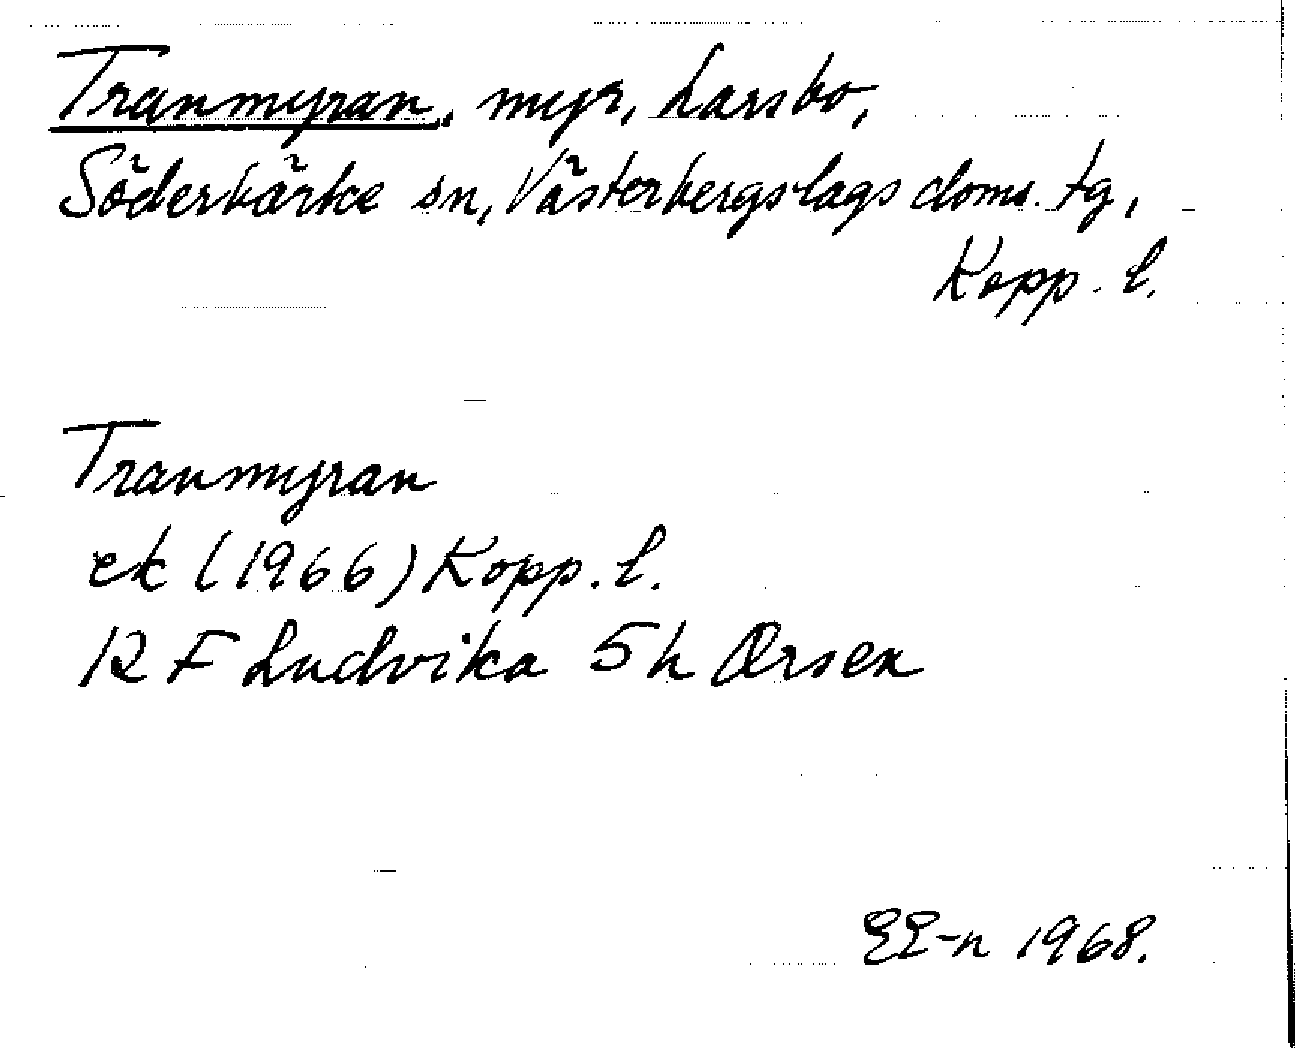 Tranmyran, myr, Larsbo,
Söderbärke sn, Västerbergslags doms. tg,
Kopp. l.
Tranmyran
ek (1966) Kopp. l.
12 F Ludvika 5 h Örsen
EE-n 1968.